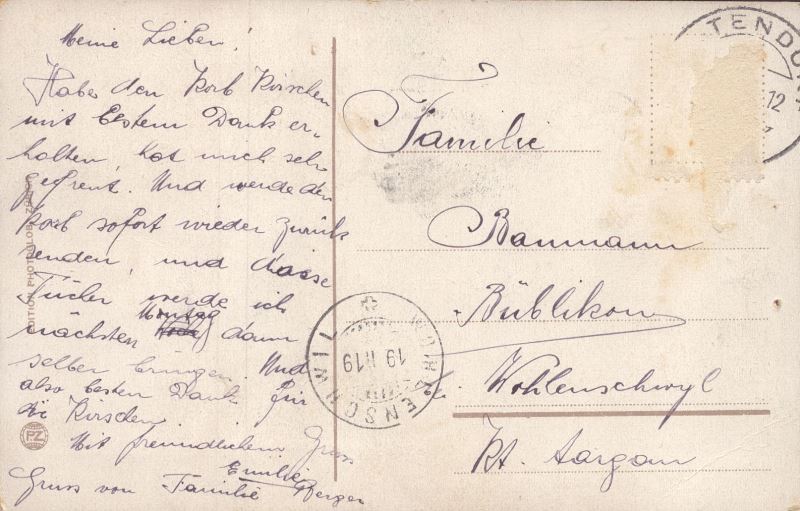 Meine Lieben!
Habe den Korb Kirschen
mit Bestem Dank er-
halten, hat mich sehr
gefreut. Und werde den
Korb sofort wieder zurück
senden, und
Tücher werde ich
nächsten Montag dann
selber bringen. Und
also besten Dank für
die Kirschen.
Mit freundlichem Gruss
Emilie
Gruss von Familie Berger
EDITION PHOTOGLOB
PZ
TENDO
12
Familie
Baumann
Büblikon
Wohlenschwyl
Kt. Aargau
WOHLENSCHWIL
19